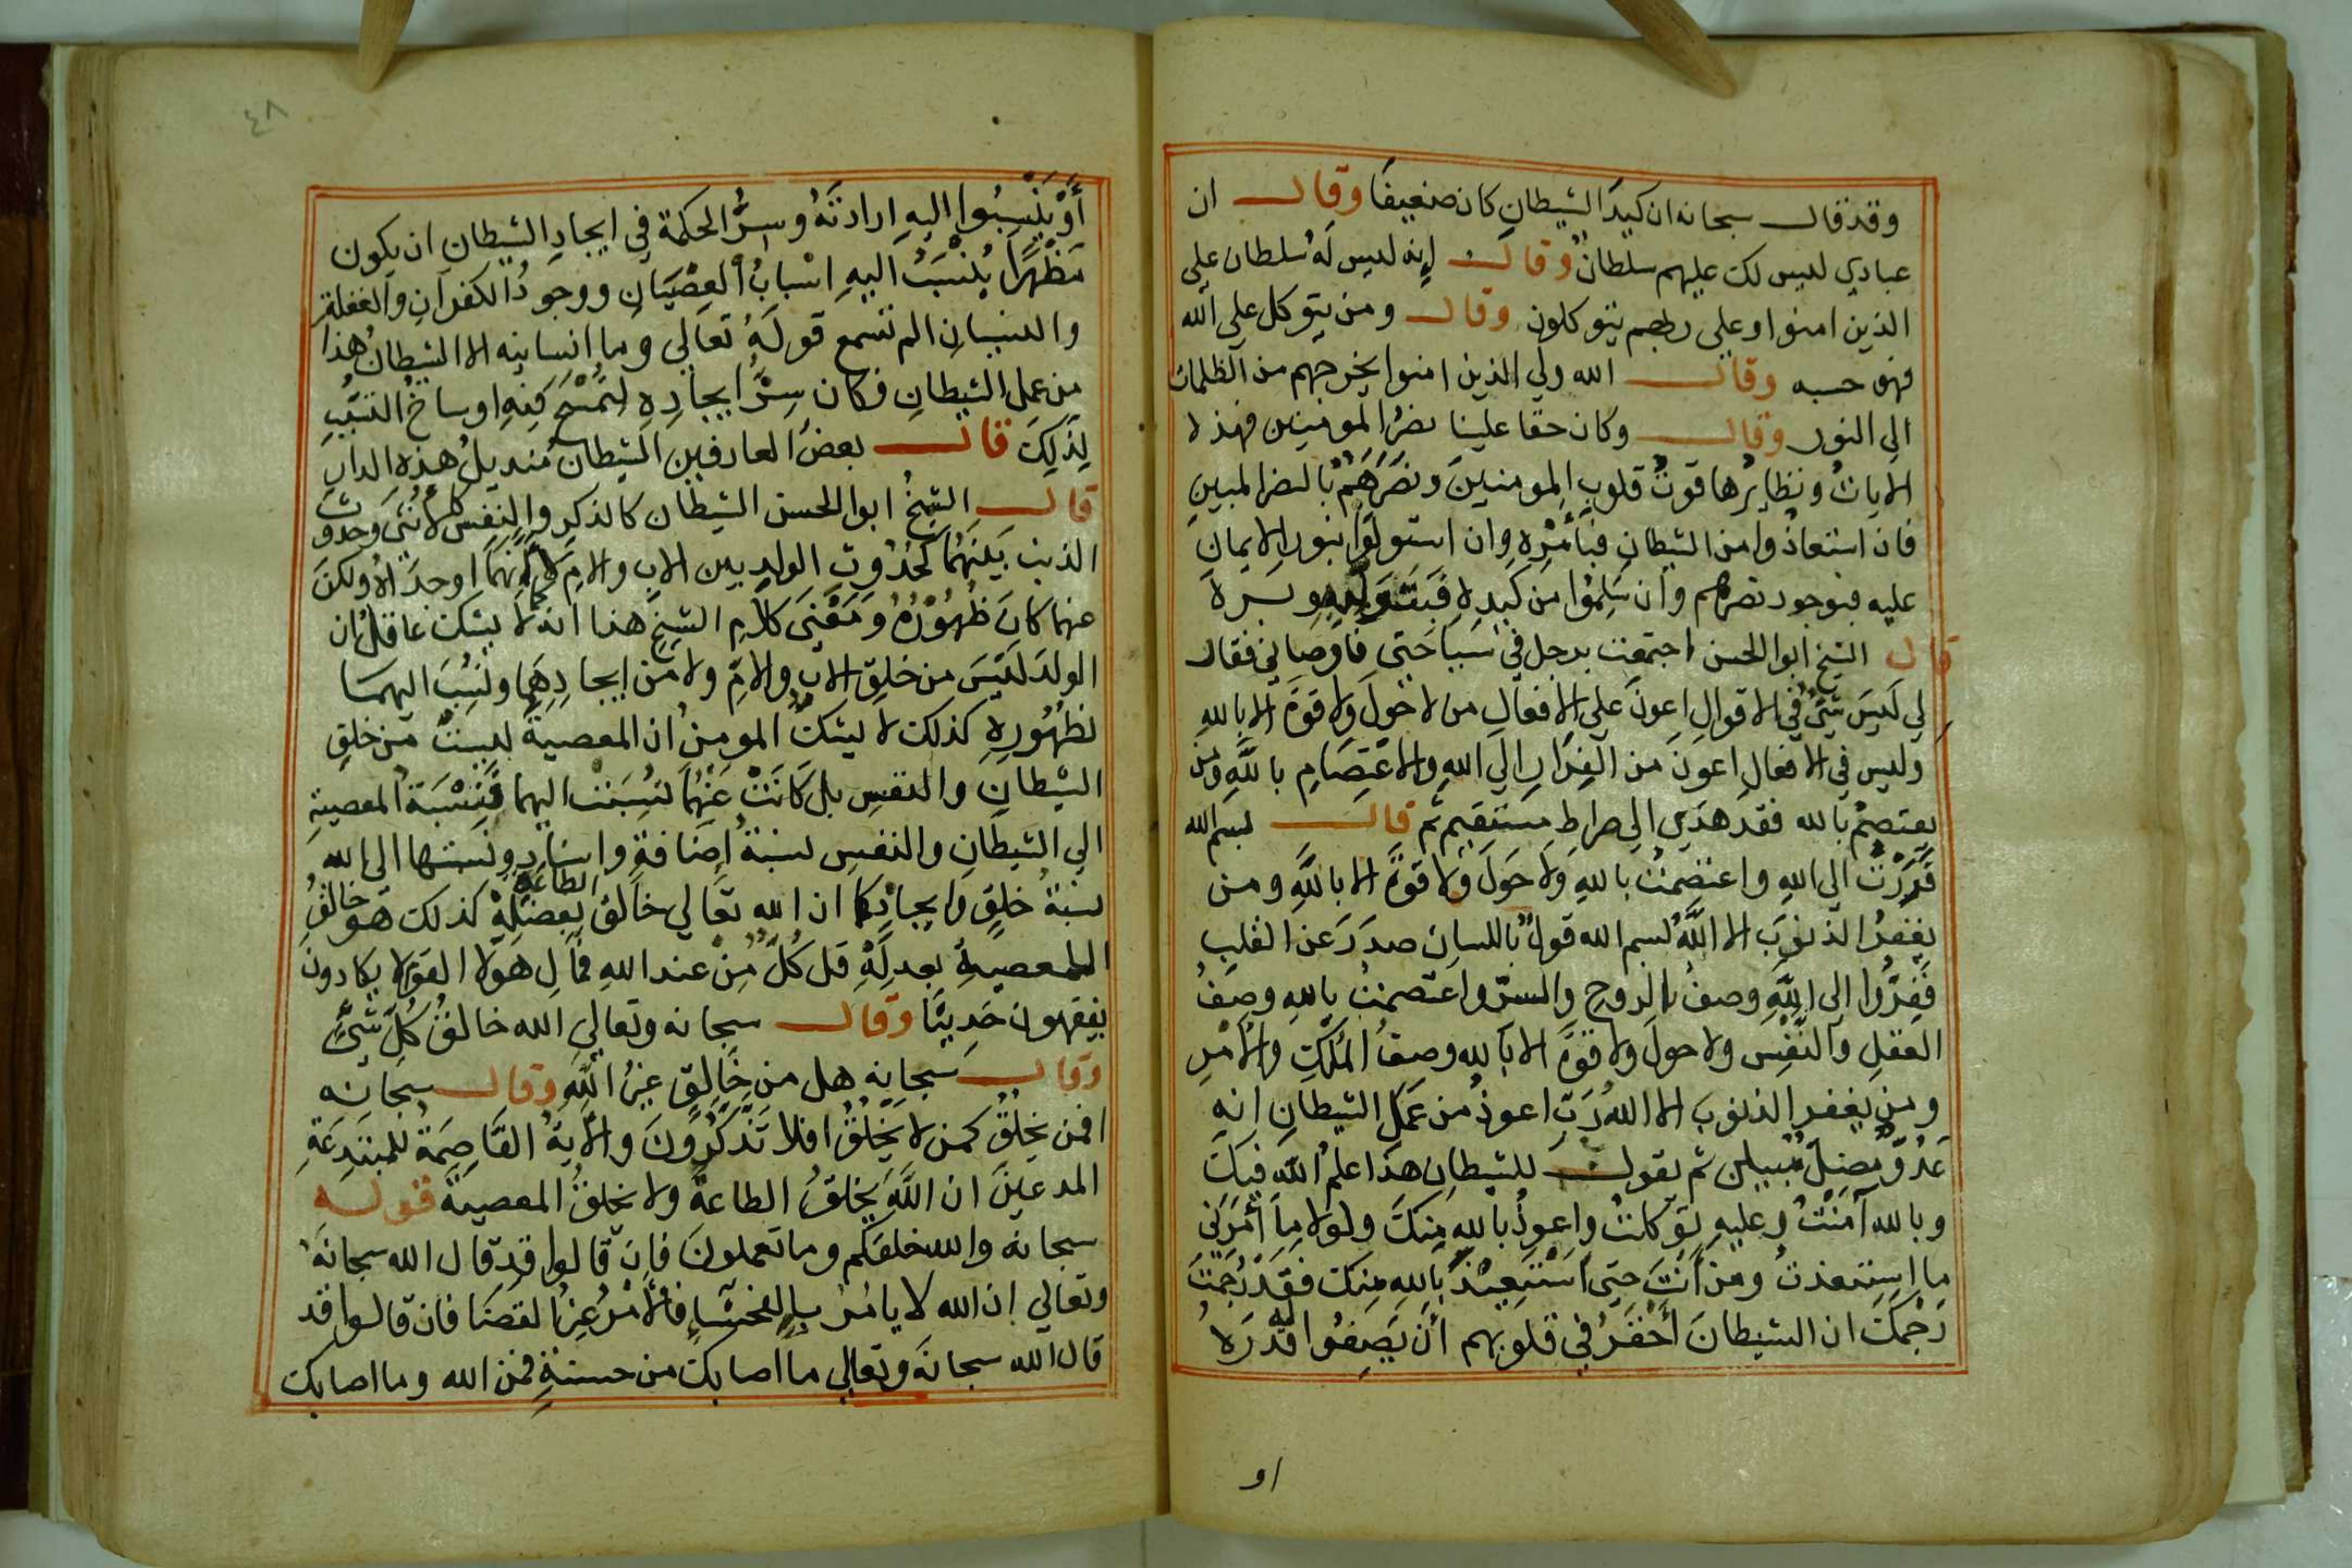 وقد قال سبحانه ان كيد الشيطان كان ضعيفا وقال ان
عبادي ليس لك عليهم سلطان وقال إنه ليس له سلطان على
الذين امنوا وعلى ربهم يتوكلون وقال ومن يتوكل على الله
فهو حسبه وقال الله ولي الذين امنوا يخرجهم من الظلمات
الى النور وقال وكان حقا علينا نصر المومنين فهذه
الايات ونظايرها قوت قلوب المومنين ونصرهم بالنصر المبين
فان استعاذوا من الشيطان فبأمره وان استولوا بنور الايمان
عليه فبوجود نصرهم وان سلموا من كيده
قال الشيخ ابو الحسن اجتمعت برجل في سياحتي فاوصاني فقال
لي ليس شئ في الاقوال اعون على الافعال من لا حول ولا قوة الا بالله
وليس في الافعال اعون من الفرار الى الله والاعتصام بالله ومن
يعتصم بالله فقد هدي الى صراط مستقيم ثم قال بسم الله
فررت الى الله واعتصمت بالله ولا حول ولا قوة الا بالله ومن
يغفر الذنوب الا الله بسم الله قول باللسان صدر عن القلب
ففروا الى الله وصف الروح والسر واعتصمت بالله وصف
العقل والنفس ولا حول ولا قوة الا بالله وصف الملك والامر
ومن يغفر الذنوب الا الله رب اعوذ من عمل الشيطان انه
عدو مضل مبين ثم يقول للشيطان هذا علم الله فيك
وبالله آمنت وعليه توكلت واعوذ بالله منك ولولا ما أمرني
ما استعذت ومن أنت حتى استعيذ بالله منك فقد رجمت
رحمك ان الشيطان أحقر في قلوبهم أن يضيفوا له قدرة
او
٤٨
أو ينسبوا اليه ارادته وسر الحكمة في ايجاد الشيطان ان يكون
مظهرا ينسب اليه اسباب العصيان ووجود الكفران والغفلة
والنسيان الم تسمع قوله تعالى وما انسانيه الا الشيطان هذا
من عمل الشيطان فكان سر ايجاده لتمسح فيه اوساخ النسب
لذلك قال بعض العارفين الشيطان منديل هذه الدار
قال الشيخ ابو الحسن الشيطان كالذكر والنفس كالأنثى وحدوث
الذنب بينهما كحدوث الولد بين الاب والام لا أنهما اوجداه ولكن
عنهما كان ظهوره ومعنى كلام الشيخ هذا انه لا يشك عاقل ان
الولد ليس من خلق الاب والام ولا من ايجادهما ونسب اليهما
لظهوره كذلك لا يشك المومن ان المعصية ليست من خلق
الشيطان والنفس بل كانت عنهما لنسبت اليهما فنسبة المعصية
الى الشيطان والنفس نسبة اضافة واسناد ونسبتها الى الله
نسبة خلق وايجاد كما ان الله تعالى خالق الطاعة بفضله كذلك هو خالق
المعصية بعدله قل كل من عند الله فمال هولا القوم لا يكادون
يفقهون حديثا وقال سبحانه وتعالى الله خالق كل شئ
وقال سبحانه هل من خالق غير الله وقال سبحانه
افمن يخلق كمن لا يخلق افلا تذكرون والآية القاصمة للمبتدعة
المدعين ان الله يخلق الطاعة ولا يخلق المعصية قوله
سبحانه والله خلقكم وما تعملون فان قالوا قد قال الله سبحانه
وتعالى إن الله لا يامر بالفحشاء فالأمر غير القضا فان قالوا قد
قال الله سبحانه وتعالى ما اصابك من حسنة فمن الله وما اصابك